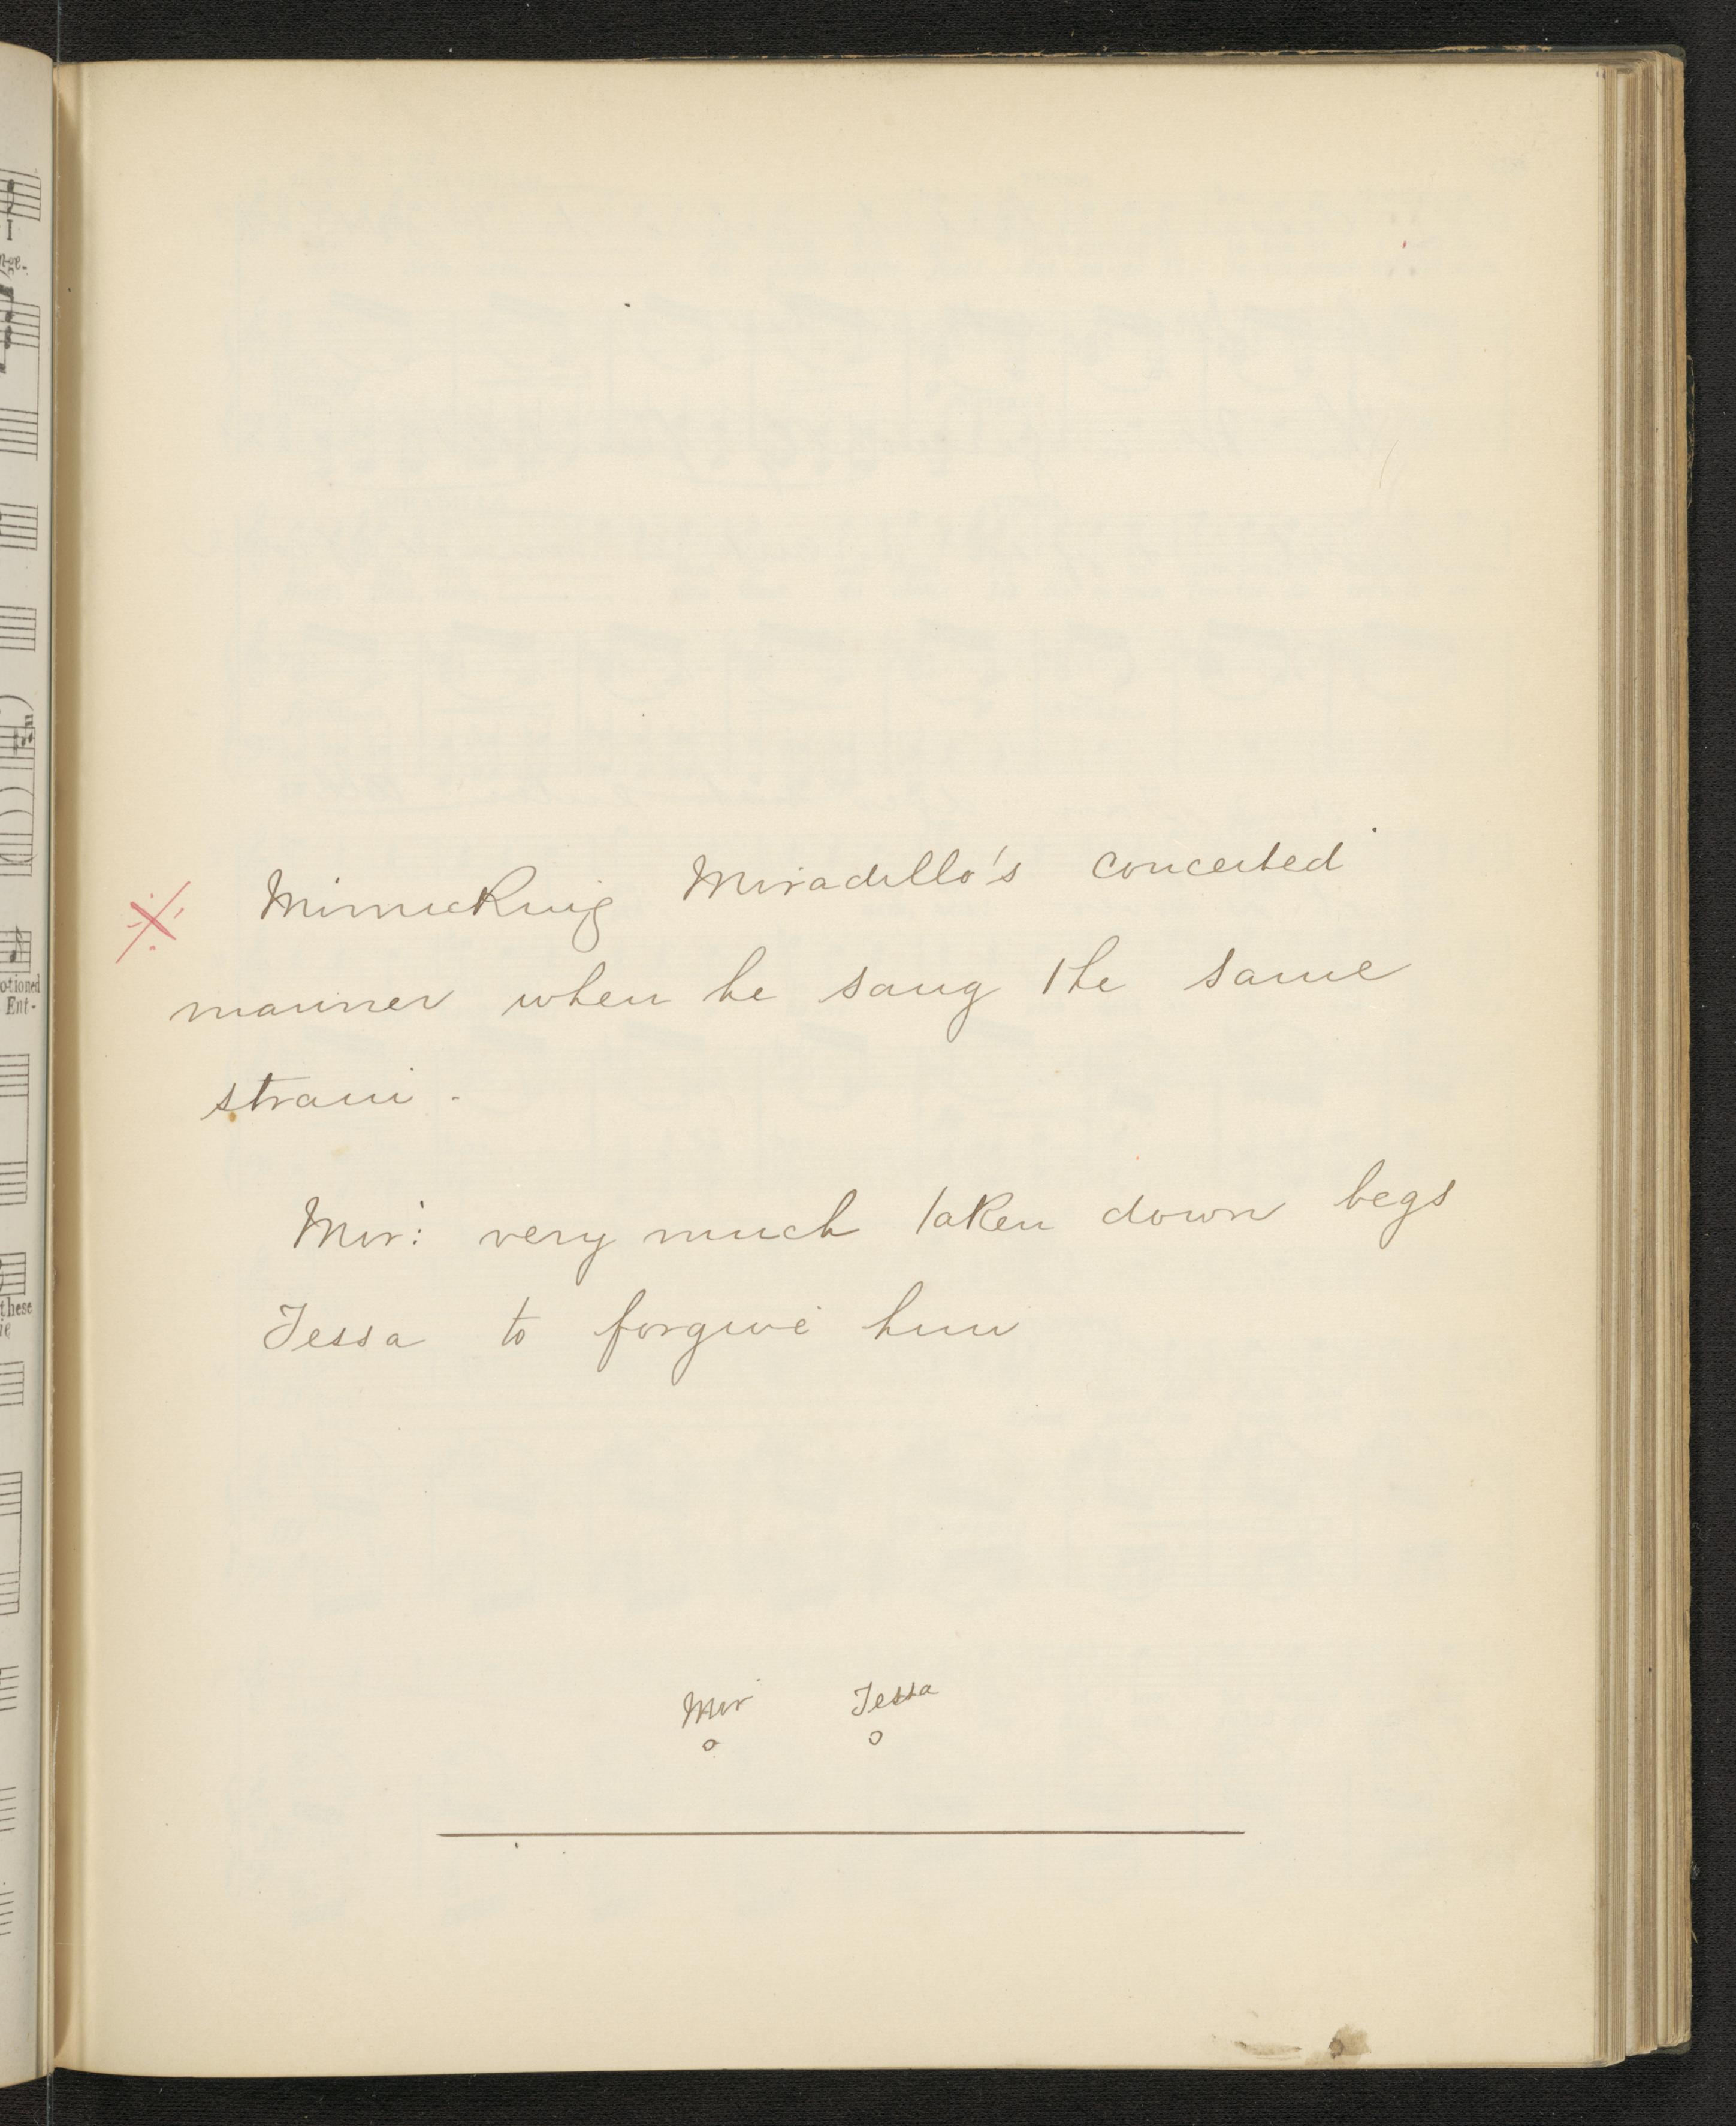 I
nge-
otioned
Ent-
these
ie
※ Mimicking Miradillo's conceited
manner when he sang the same
strain.
Mir: very much taken down begs
Tessa to forgive him
Mir Tessa